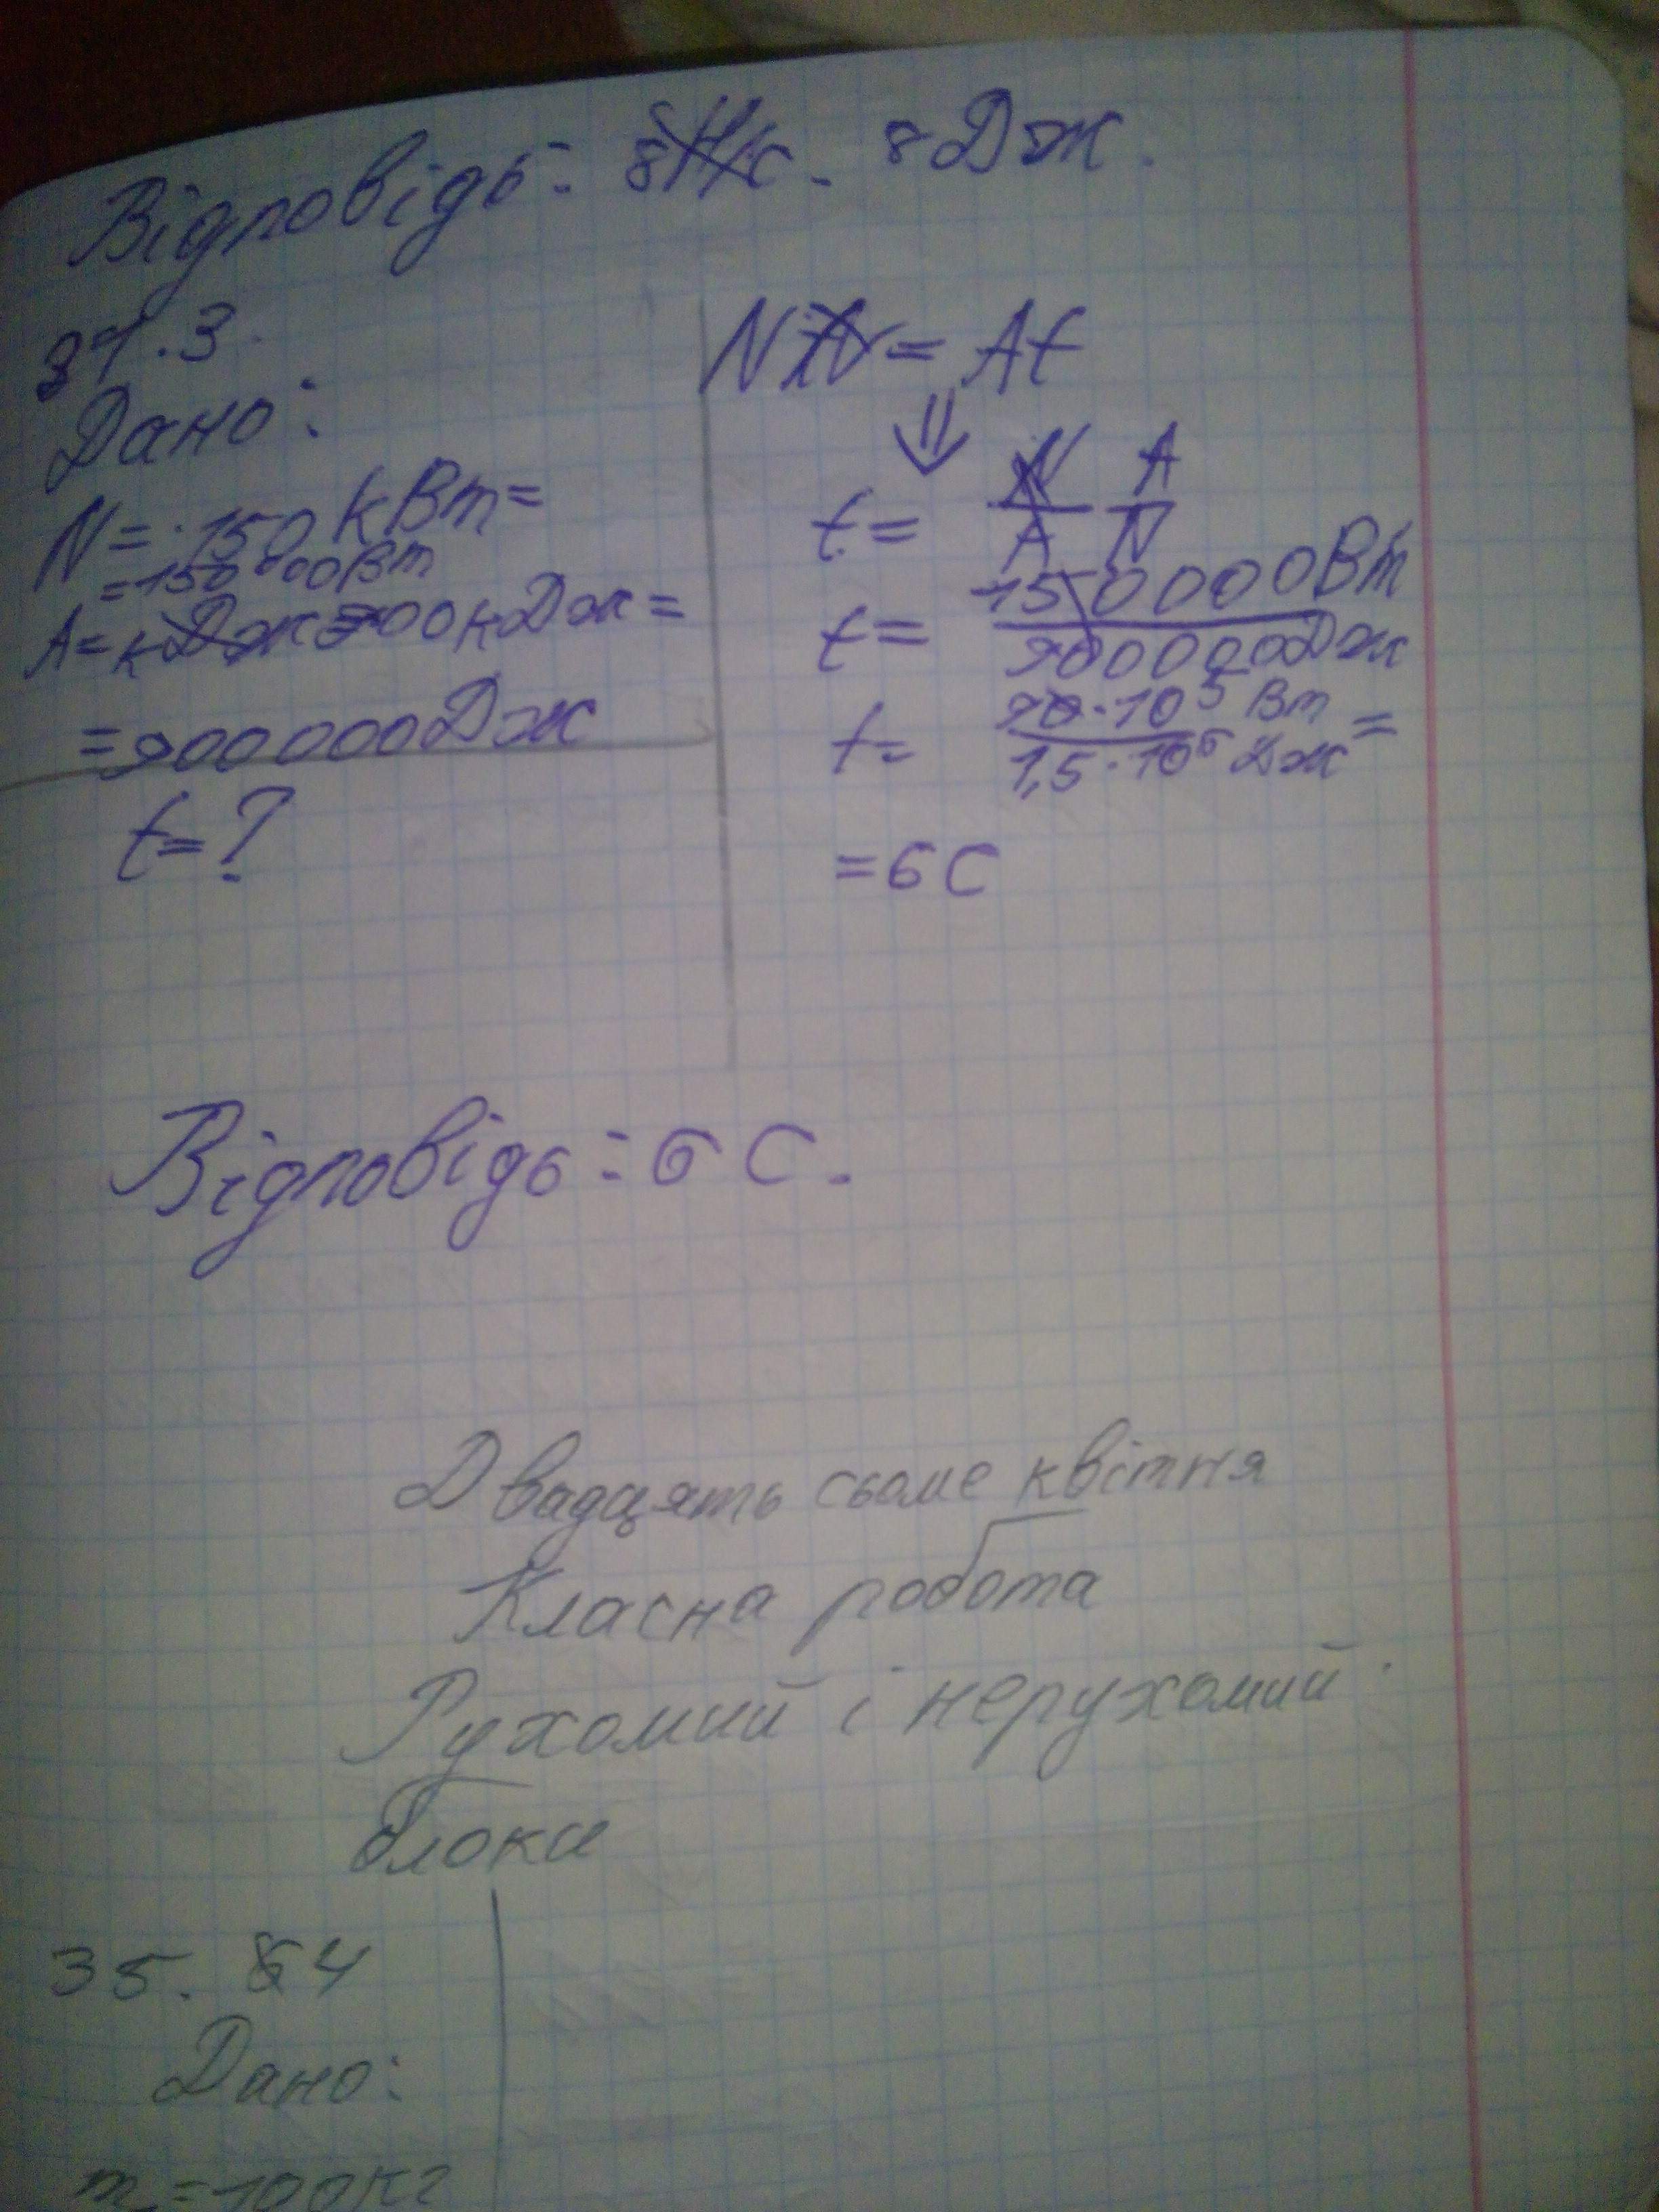 Відповідь: 8 Дж.
31.3.
Дано:
N = 150 кВт =
= 150 000 Вт
A = 900 кДж =
= 900 000 Дж
t = ?
N = At
⇓
t = A/N
t = 1500000Вт/900000Дж
t = 90·10⁵ Вт/1,5·10⁶ Дж =
= 6 С
Відповідь: 6 С.
Двадцять сьоме квітня
Класна робота
Рухомий і нерухомий
блоки
35. 4
Дано:
m = 100 кг